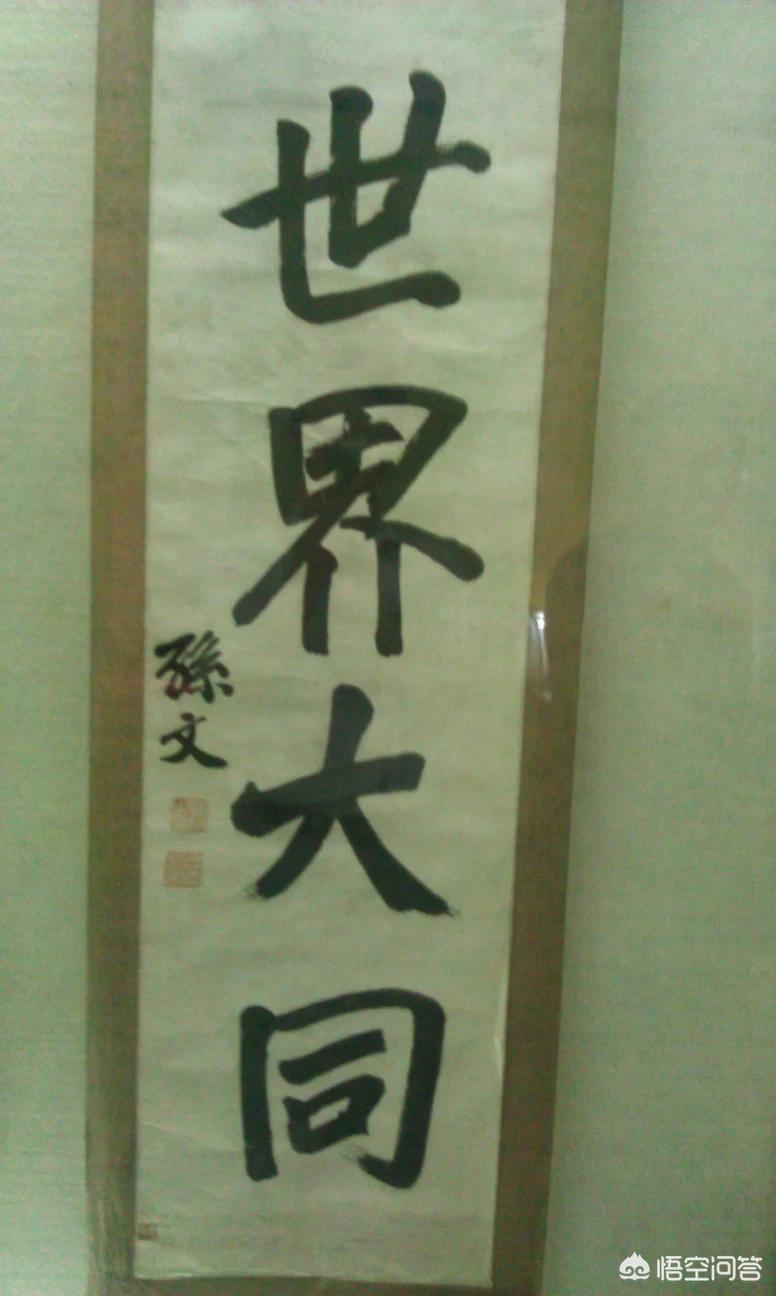 世界大同
孫文
悟空问答